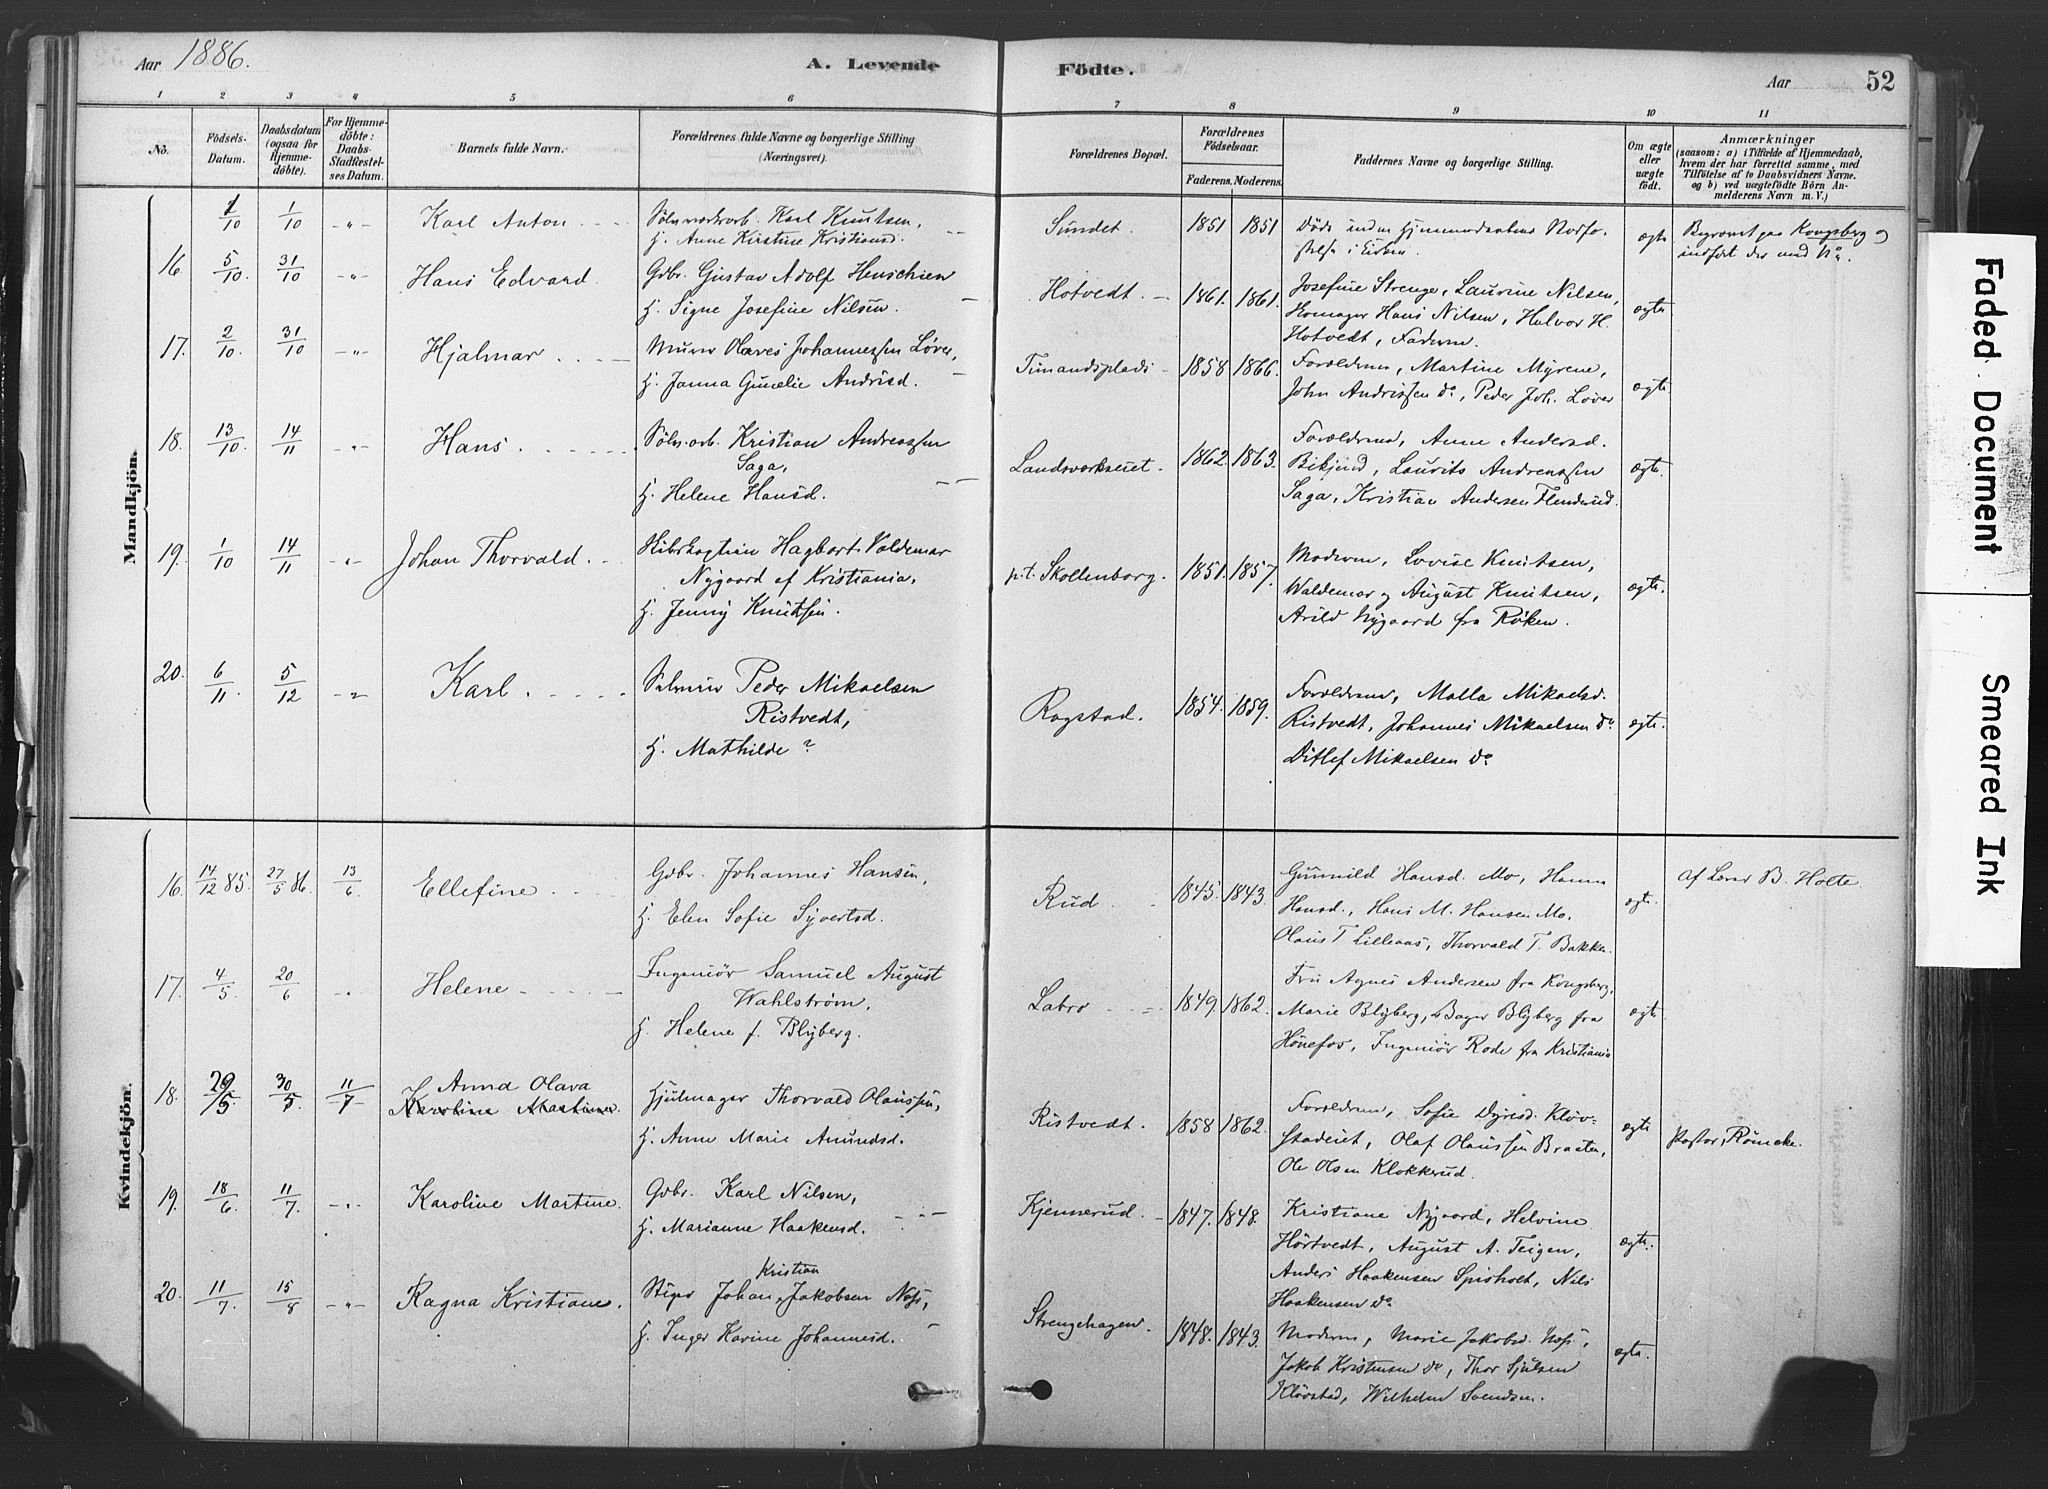 Aar 1886. A. Levende Födte. Aar 52
1 2 3 4 5 6 7 8 9 10 11
No.
Födsels-Datum.
Daabsdatum (ogsaa for Hjemme-döbte).
For Hjemme-döbte: Daabs-Stadfæstel-ses Datum.
Barnets fulde Navn.
Forældrenes fulde Navne og borgerlige Stilling (Næringsvei).
Forældrenes Bopæl.
Forældrenes Födselsaar.
Faderens. Moderens.
Faddernes Navne og borgerlige Stilling.
Om ægte eller uægte födt.
Anmærkninger
(saasom: a) i Tilfælde af Hjemmedaab, hvem der har forrettet samme, med Tilföielse af to Daabsvidners Navne. og b) ved uægtefödte Börn An-melderens Navn m. V.)
Mandkjön.
1/10 1/10 -"- Karl Anton
Karl Knutsen,
H. Anne Kirstine Kristiansd.
Sundet. 1851 1851
Döde inden Hjemmedaabens
i Kirken.
ægte
Begravet paa Kongsberg og
indført der med No.
16 5/10 31/10 -"- Hans Edvard
Gdbr. Gustav Adolf Henschien
H. Signe Josefine Nilsen
Hotvedt. 1861. 1861.
Josefine Strenge, Laurine Nilsen,
Skomager Hans Nilsen, Halvor H.
Hotvedt, Faderen.
ægte
17. 2/10 31/10 -"- Hjalmar
Murer Olaves Johannessen Løver,
H. Janna Gunelie Andrisd.
Timandsplads 1858 1866.
Forældrene, Martine Myrene,
John Andrissen do, Peder Joh. Løver
ægte
18. 13/10 14/11 -"- Hans.
Sølv.arb. Kristian Andreassen
Saga,
H. Helene Hansd.
Landsverkseiet. 1862. 1863.
Forældrene, Anne Andersd.
Bikjend, Laurits Andreassen
Saga, Kristian Andersen
ægte.
19. 1/10 14/11 -"- Johan Thorvald.
Hagbart Valdemar
Nygaard af Kristiania,
H. Jenny Knutsen.
p.t. Skollenborg. 1851. 1857.
Moderen, Lovise Knutsen,
Waldemar og August Knutsen,
Arild Nygaard fra Røken.
ægte.
20. 6/11 5/12 -"- Karl.
Peder Mikaelsen
Ristvedt,
H. Mathilde ?
Rogstad. 1854. 1859.
Forældrene, Malla Mikaelsd.
Ristvedt, Johannes Mikaelsen do
Ditlef Mikaelsen do
ægte.
Kvindekjön.
16. 14/12 85. 27/5 86. 13/6 Ellefine
Gdbr. Johannes Hansen,
H. Elen Sofie Syvertsd.
Rud. 1845. 1843.
Gunnild Hansd. Mo, Hanna
Hansd., Hans M. Hansen Mo.
Olaus T. Lilleaas, Thorvald T. Bakke.
ægte.
Af Lærer B. Holte.
17. 4/5 20/6 -"- Helene
Ingeniör Samuel August
Wahlstrøm,
H. Helene f. Blyberg.
Labro 1849. 1862.
Fru Agnes Andersen fra Kongsberg,
Marie Blyberg, Bager Blyberg fra
Hönefos, Ingeniör Rode fra Kristiania
ægte
18. 29/5 30/5 11/7 Anna Olava
Karoline Martine.
Hjulmager Thorvald Olaussen,
H. Anne Marie Amundsd.
Ristvedt. 1858 1862.
Forældrene, Sofie Dyresd. Kløv-
stadeiet, Olaf Olaussen Braaten,
Ole Olsen Klokkerud.
ægte
Pastor Römcke.
19. 18/6 11/7 -"- Karoline Martine.
Gdbr. Karl Nilsen,
H. Marianne Haakensd.
Kjennerud. 1847. 1848.
Kristiane Nygaard, Helvine
Hörtvedt, August A. Teigen,
Anders Haakensen Spisholt, Nils
Haakensen do
ægte.
20. 11/7 15/8 -"- Ragna Kristiane.
Kristian
Stiger Johan Jakobsen Næss,
H. Inger Karine Johannesd.
Strengehagen. 1848. 1843.
Moderen, Marie Jakobsd. Næss,
Jakob Kristensen do, Thor Sjulsen
Klövstad, Wilhelm Svendsen.
ægte.
Faded Document
Smeared Ink